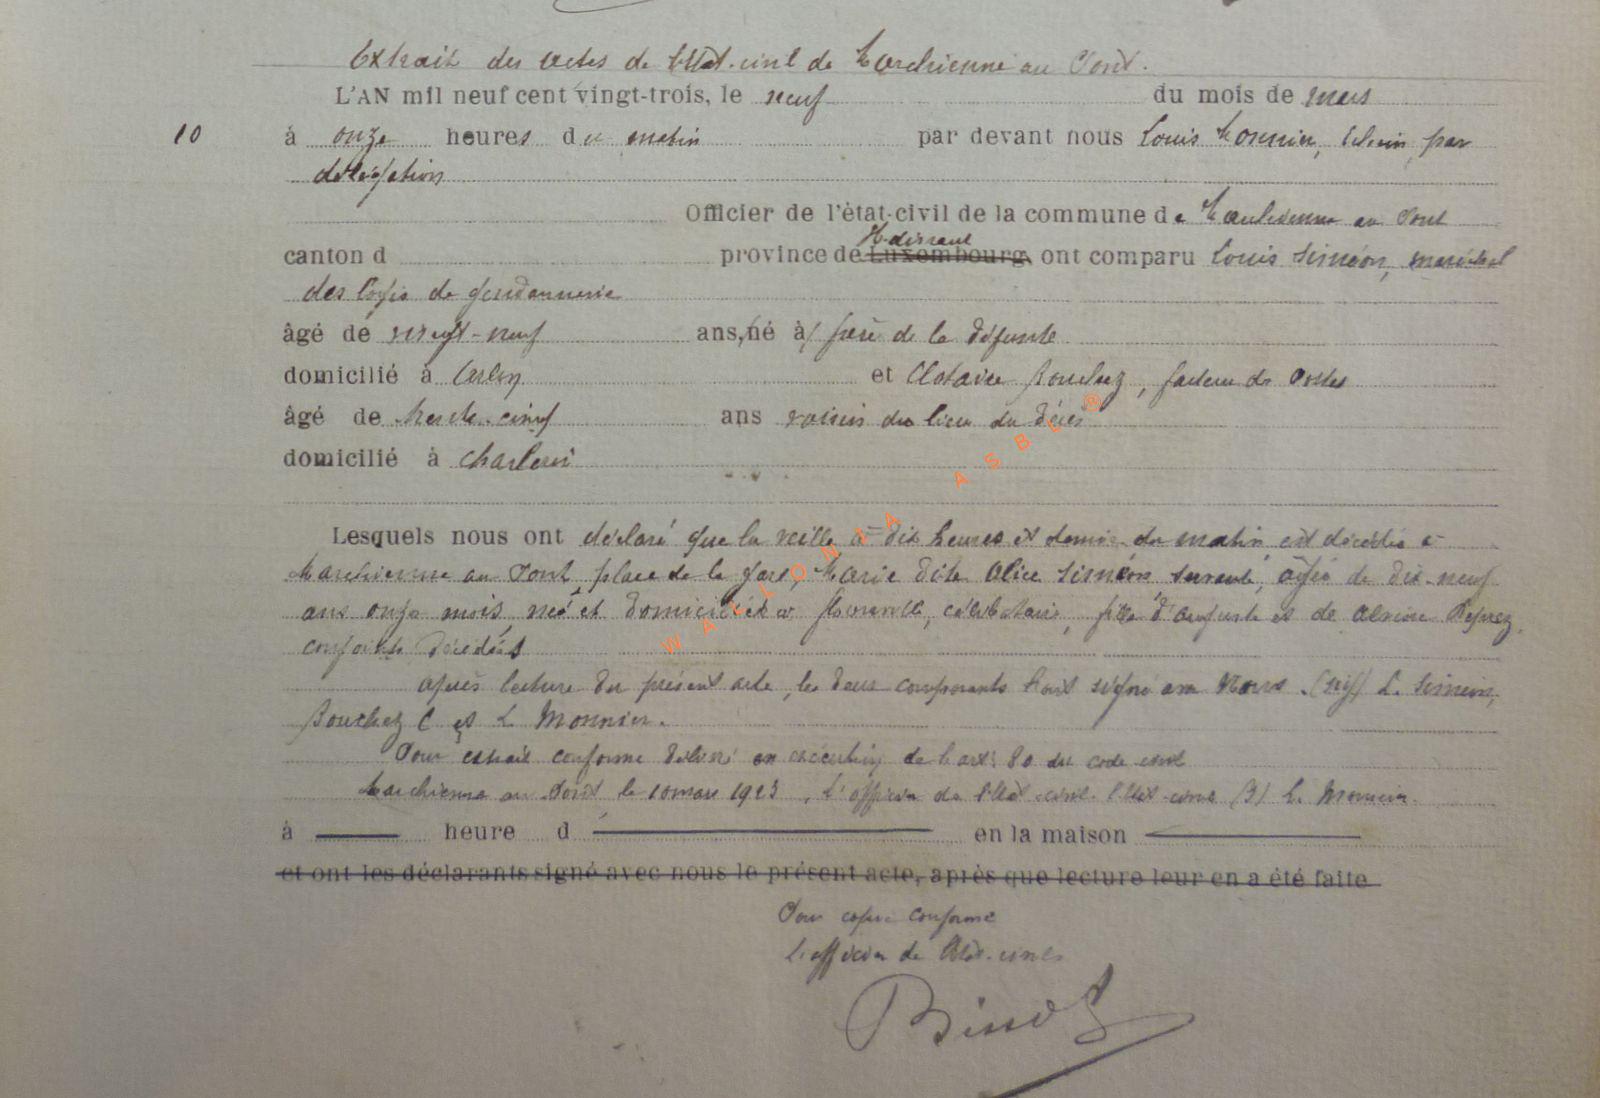 Extrait des actes de l'Etat-civil de Marchienne au Pont.
L'AN mil neuf cent vingt-trois, le neuf du mois de mars
10 à onze heures du matin par devant nous Louis Monnier, Echevin, par
délégation
Officier de l'état-civil de la commune de Marchienne au Pont
Hainaut
canton d province de Luxembourg, ont comparu Louis Siméon, maréchal
des logis de gendarmerie
âgé de vingt-neuf ans, né à frère de la défunte
domicilié à Arlon et Clotaire Bouchez, facteur des Postes
âgé de trente-cinq ans voisin du lieu du décès
domicilié à Charleroi
Lesquels nous ont déclaré que la veille à dix heures et demie du matin, est décédée à
Marchienne au Pont, place de la gare, Marie dite Alice Siméon, servante, âgée de dix-neuf
ans onze mois, née et domiciliée à Florenville, célibataire, fille d'Auguste et de Depuez,
conjoints décédés
Après lecture du présent acte, les deux comparants l'ont signé avec Nous. (sig) L. Siméon,
Bouchez C et L Monnier.
Pour extrait conforme délivré en exécution de l'art: 80 du code civil
Marchienne au Pont le 10 mars 1923, L'officier de l'Etat-civil. l'Etat-civil (s) L. Monnier.
à heure d en la maison
et ont les déclarants signé avec nous le présent acte, après que lecture leur en a été faite
Pour copie conforme
L'officier de l'Etat-civil
WALLONIA ASBL ®